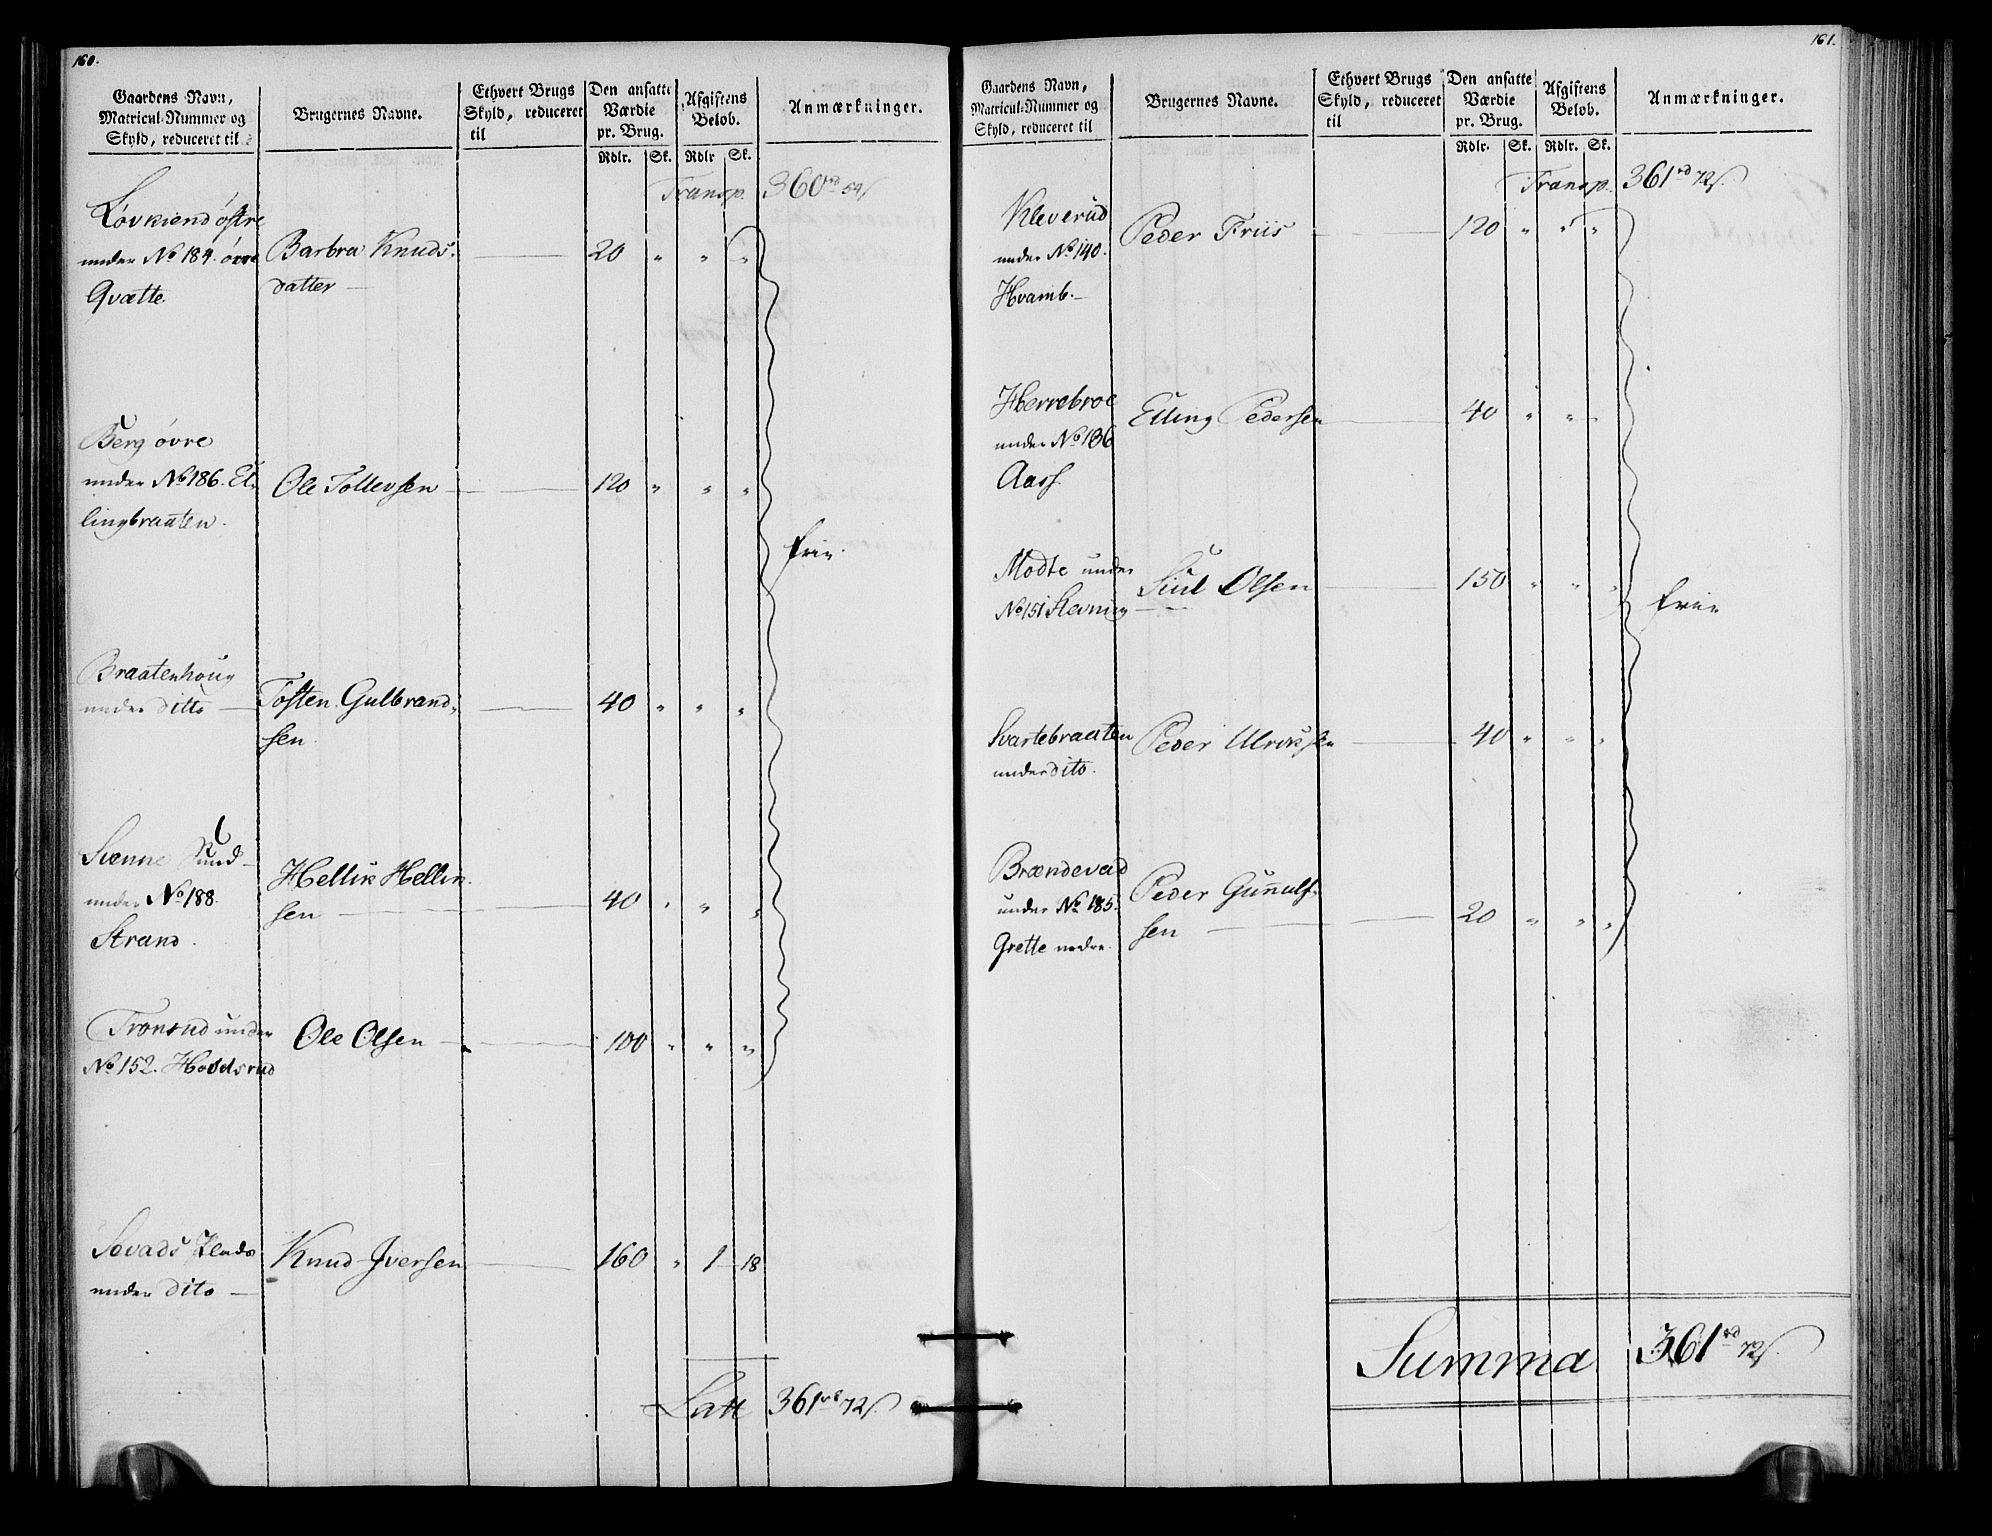 160.
Gaardens Navn,
Matricul-Nummer og
Skyld, reduceret til
Brugernes Navne.
Ethvert Brugs
Skyld, reduceret
til
Den ansatte
Værdie
pr. Brug.
Afgiftens
Beløb.
Anmærkninger.
Rdlr. Sk. Rdlr Sk.
Transp. 360 rd 54 s
Løvkiend østre
under No 184. øvre Barbra Knuds- 20 " " "
Qvætte. datter
Berg øvre
under No 186. El- Ole Tollevsen 120 " " "
lingbraaten.
frie.
Braatenhoug
under ditto Tosten Gulbrand- 40 " " "
sen.
Sund
under No 188. Hellik Hellik- 40 " " "
Strand. sen
Tronrud under Ole Olsen 100 " " "
No 152.
under dito Knud Iversen 160 " 1 18
Latt 361 rd 72 s.
161.
Gaardens Navn,
Matricul-Nummer og
Skyld, reduceret til
Brugernes Navne.
Ethvert Brugs
Skyld, reduceret
til
Den ansatte
Værdie
pr. Brug.
Afgiftens
Beløb.
Anmærkninger.
Rdlr. Sk. Rdlr. Sk.
Transp. 361 rd 72 s.
Kleverud Peder Friis 120 " " "
under No 140.
Hvamb.
Herrebroe Elling Pedersen 40 " " "
under No 136
Aass.
Modte under Siul Olsen 150 " " "
No 151 Stevning
frie
Svartebraaten Peder Ulriksen 40 " " "
under dito.
Brændevad
under No 185. Peder Gunnuls- 20 " " "
Grette nedre. sen
Summa 361 rd 72 s.